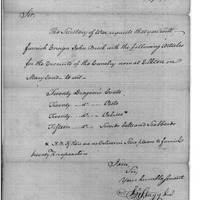 Sir,
The Secretary of War requests that you will
furnish Ensign John Buck with the following articles
for the Recruits of the Cavalry now at Elkton in
Maryland to wit.
Twenty Dragoon's Coats
Twenty - do - Vests
Twenty - do -
Fifteen - do - Swords belts and Scabbards
N.B. If there are no
twenty Knapsacks
I am
Sir,
Your humble servant